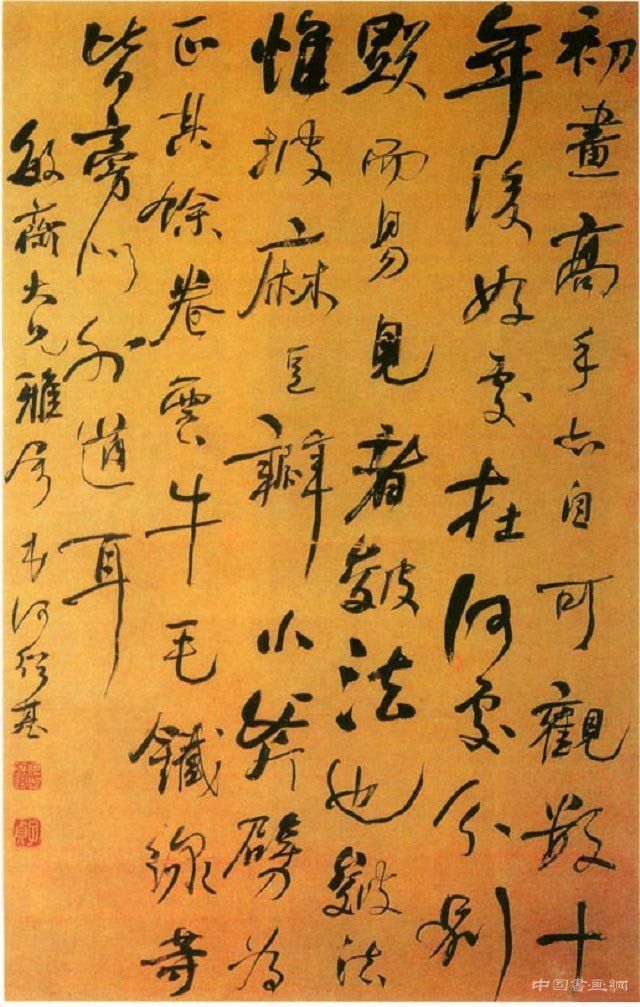 初畫高手亦自可觀數十
年後好處在何處分別
顯而易見者皴法也皴法
惟披麻豆瓣小斧劈為
正其餘卷雲牛毛鐵線等
皆旁門外道耳
敏齋大兄雅屬 何紹基
中国書画網